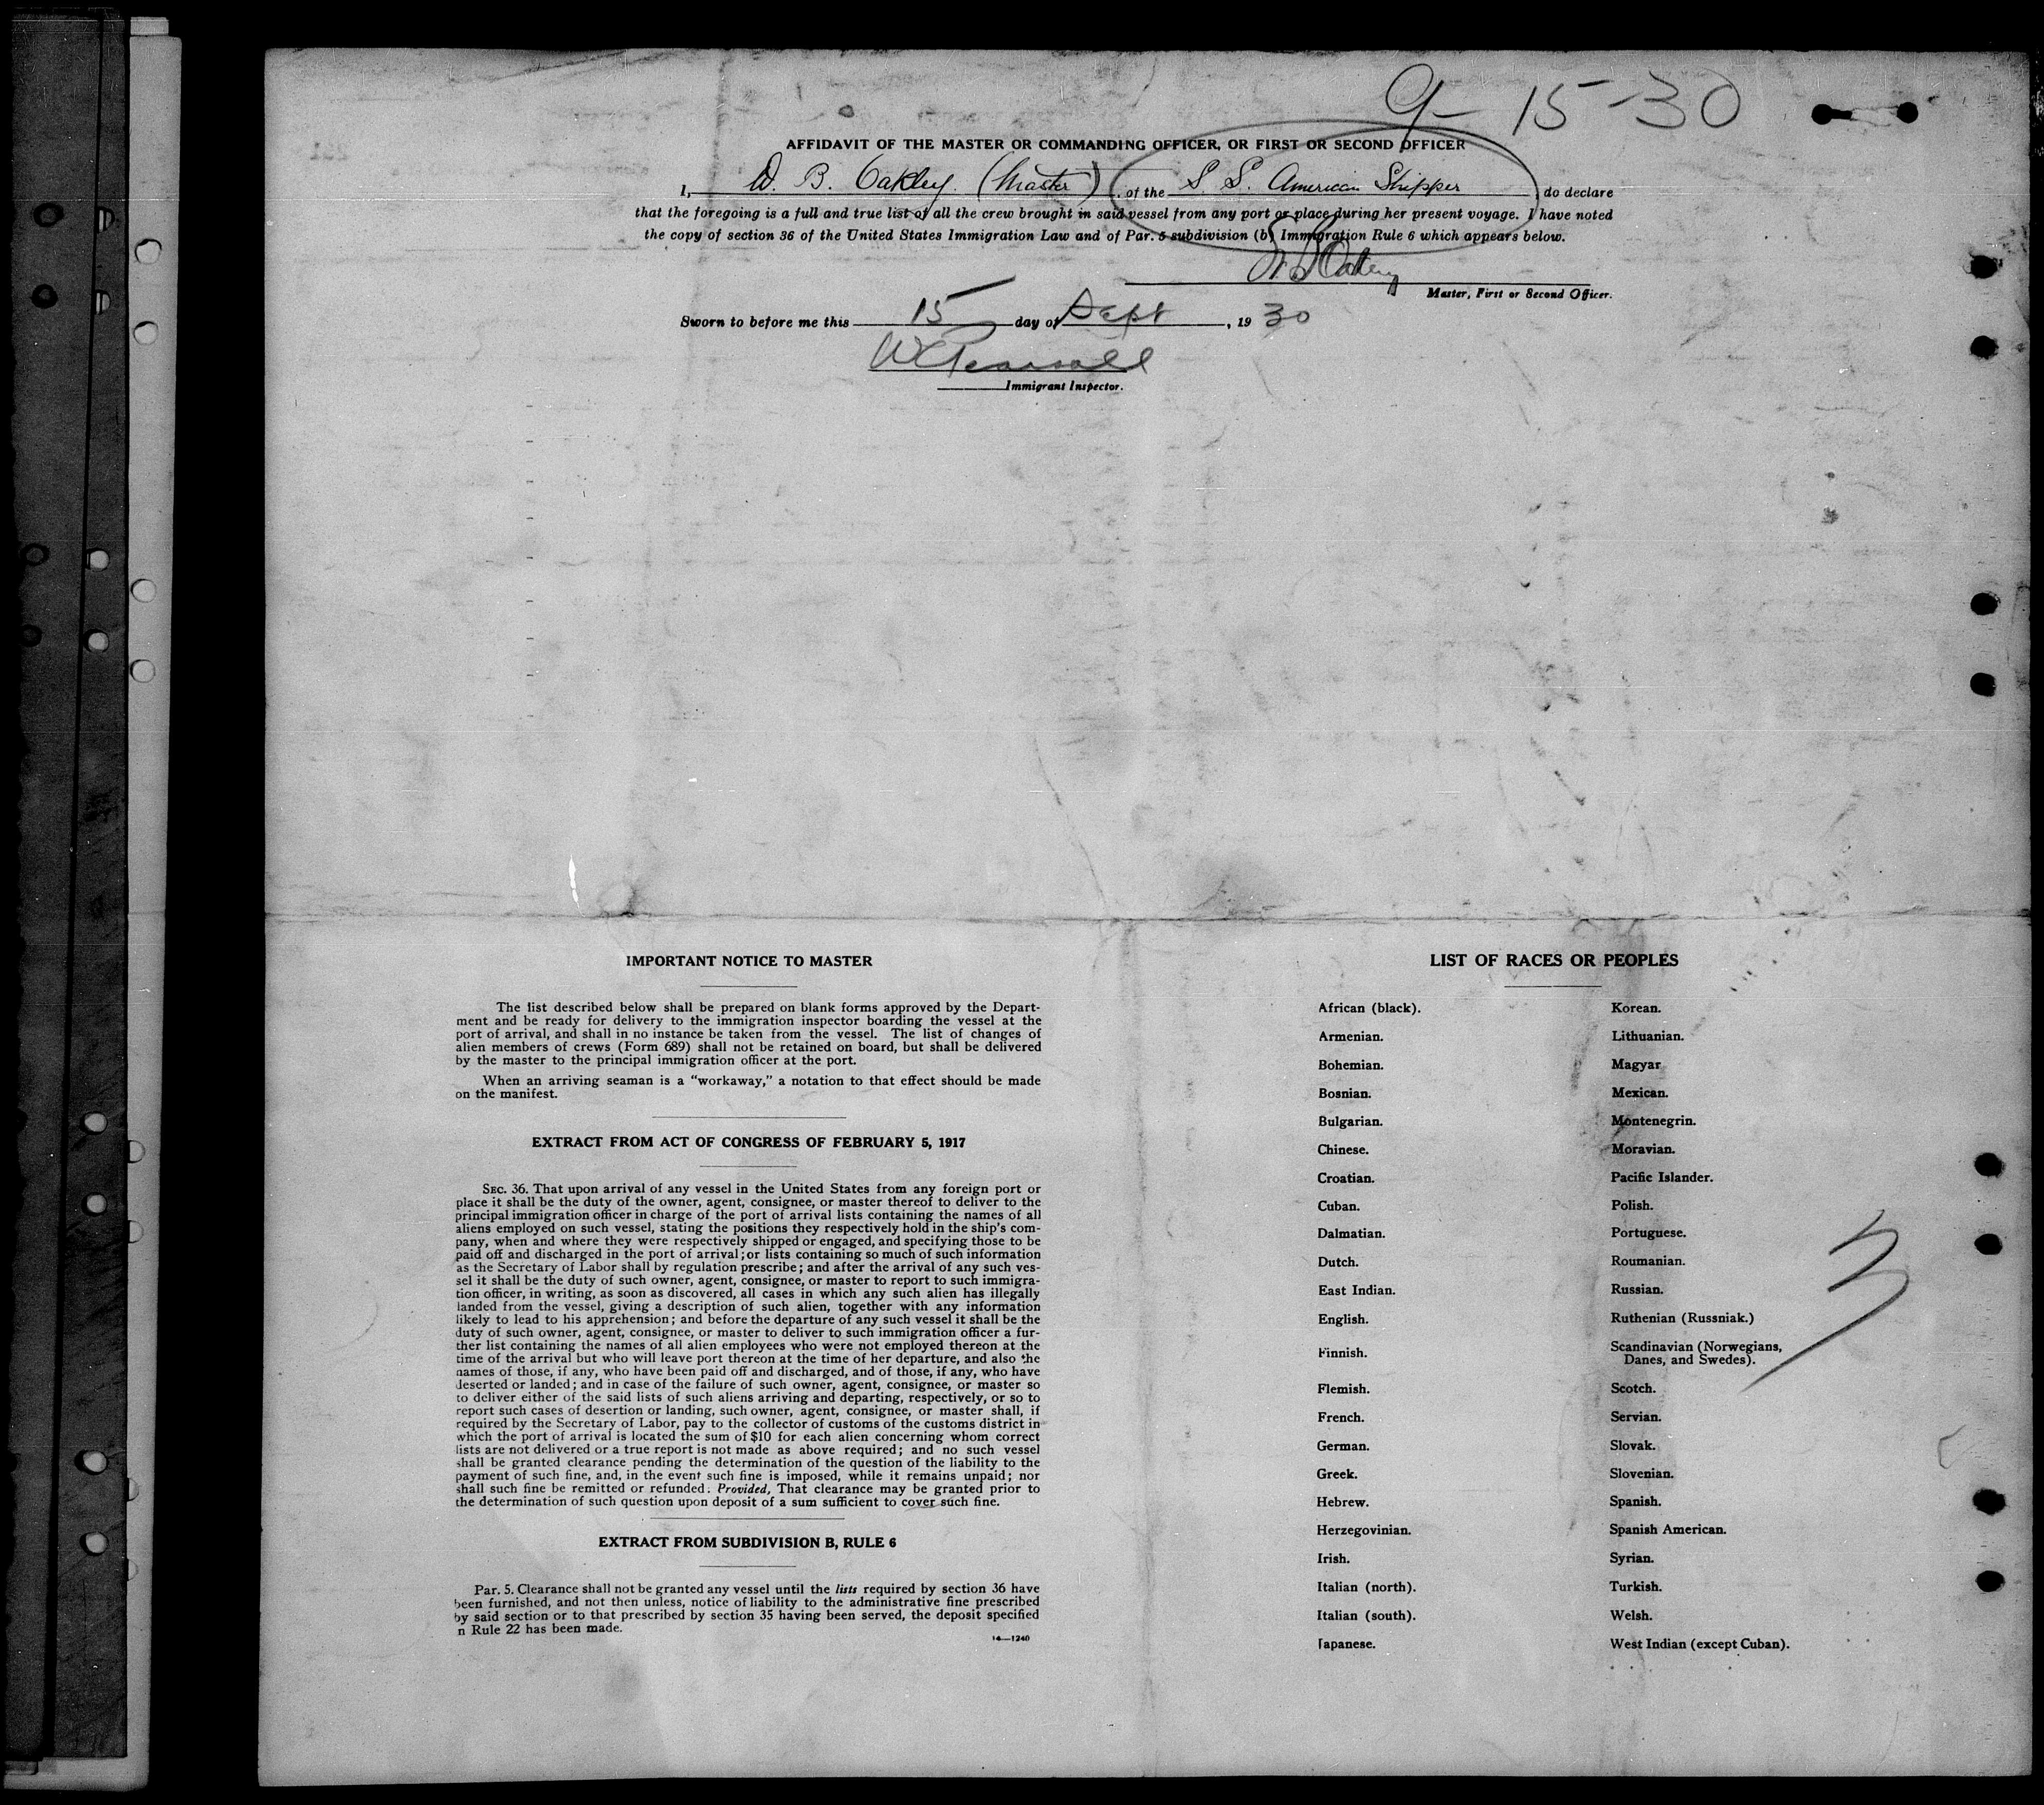 9-15-30
AFFIDAVIT OF THE MASTER OR COMMANDING OFFICER, OR FIRST OR SECOND OFFICER
I, W. B. Oakley. (Master), of the S. S. American Shipper, do declare
that the foregoing is a full and true list of all the crew brought in said vessel from any port or place during her present voyage. I have noted
the copy of section 36 of the United States Immigration Law and of Par. 5 subdivision (b) Immigration Rule 6 which appears below.
W B Oakley
Master, First or Second Officer.
Sworn to before me this 15 day of Sept, 19 30
Immigrant Inspector.
IMPORTANT NOTICE TO MASTER
The list described below shall be prepared on blank forms approved by the Depart-
ment and be ready for delivery to the immigration inspector boarding the vessel at the
port of arrival, and shall in no instance be taken from the vessel. The list of changes of
alien members of crews (Form 689) shall not be retained on board, but shall be delivered
by the master to the principal immigration officer at the port.
When an arriving seaman is a "workaway," a notation to that effect should be made
on the manifest.
EXTRACT FROM ACT OF CONGRESS OF FEBRUARY 5, 1917
SEC. 36. That upon arrival of any vessel in the United States from any foreign port or
place it shall be the duty of the owner, agent, consignee, or master thereof to deliver to the
principal immigration officer in charge of the port of arrival lists containing the names of all
aliens employed on such vessel, stating the positions they respectively hold in the ship's com-
pany, when and where they were respectively shipped or engaged, and specifying those to be
paid off and discharged in the port of arrival; or lists containing so much of such information
as the Secretary of Labor shall by regulation prescribe; and after the arrival of any such ves-
sel it shall be the duty of such owner, agent, consignee, or master to report to such immigra-
tion officer, in writing, as soon as discovered, all cases in which any such alien has illegally
landed from the vessel, giving a description of such alien, together with any information
likely to lead to his apprehension; and before the departure of any such vessel it shall be the
duty of such owner, agent, consignee, or master to deliver to such immigration officer a fur-
ther list containing the names of all alien employees who were not employed thereon at the
time of the arrival but who will leave port thereon at the time of her departure, and also the
names of those, if any, who have been paid off and discharged, and of those, if any, who have
deserted or landed; and in case of the failure of such owner, agent, consignee, or master so
to deliver either of the said lists of such aliens arriving and departing, respectively, or so to
report such cases of desertion or landing, such owner, agent, consignee, or master shall, if
required by the Secretary of Labor, pay to the collector of customs of the customs district in
which the port of arrival is located the sum of $10 for each alien concerning whom correct
lists are not delivered or a true report is not made as above required; and no such vessel
shall be granted clearance pending the determination of the question of the liability to the
payment of such fine, and, in the event such fine is imposed, while it remains unpaid; nor
shall such fine be remitted or refunded: Provided, That clearance may be granted prior to
the determination of such question upon deposit of a sum sufficient to cover such fine.
EXTRACT FROM SUBDIVISION B, RULE 6
Par. 5. Clearance shall not be granted any vessel until the lists required by section 36 have
been furnished, and not then unless, notice of liability to the administrative fine prescribed
by said section or to that prescribed by section 35 having been served, the deposit specified
n Rule 22 has been made.
14—1240
LIST OF RACES OR PEOPLES
African (black).
Armenian.
Bohemian.
Bosnian.
Bulgarian.
Chinese.
Croatian.
Cuban.
Dalmatian.
Dutch.
East Indian.
English.
Finnish.
Flemish.
French.
German.
Greek.
Hebrew.
Herzegovinian.
Irish.
Italian (north).
Italian (south).
Japanese.
Korean.
Lithuanian.
Magyar
Mexican.
Montenegrin.
Moravian.
Pacific Islander.
Polish.
Portuguese.
Roumanian.
Russian.
Ruthenian (Russniak.)
Scandinavian (Norwegians,
Danes, and Swedes).
Scotch.
Servian.
Slovak.
Slovenian.
Spanish.
Spanish American.
Syrian.
Turkish.
Welsh.
West Indian (except Cuban).